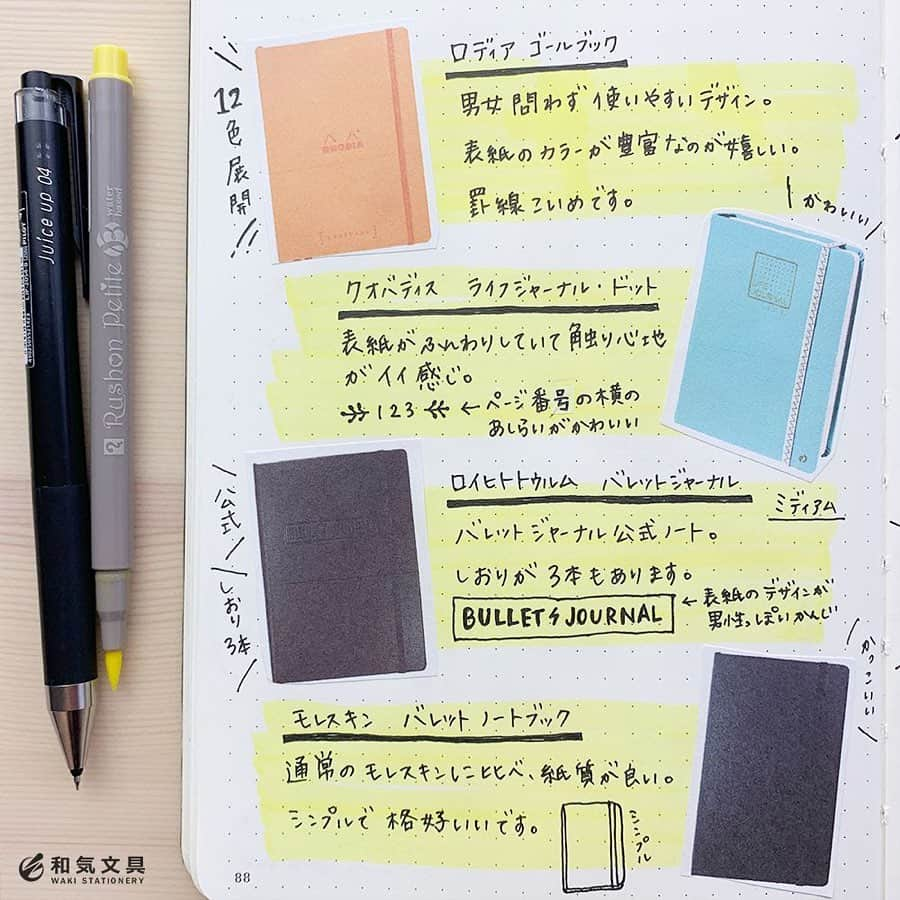 ロディア ゴールブック
12色展開
男女問わず使いやすいデザイン。
表紙のカラーが豊富なのが嬉しい。
罫線こいめです。
RHODIA
かわいい
クオバディス ライフジャーナル・ドット
表紙がふんわりしていて触り心地
がイイ感じ。
123 ←ページ番号の横の
あしらいがかわいい
JOURNAL
ロイヒトトウルム バレットジャーナル
ミディアム
公式
しおり3本
バレットジャーナル公式ノート。
しおりが3本もあります。
BULLET JOURNAL
←表紙のデザインが
男性っぽいかんじ
かっこいい
モレスキン バレットノートブック
通常のモレスキンに比べ、紙質が良い。
シンプルで格好いいです。
シンプル
88
Juice up 04
PILOT
Rushon Petite
water based
2
和気文具
WAKI STATIONERY